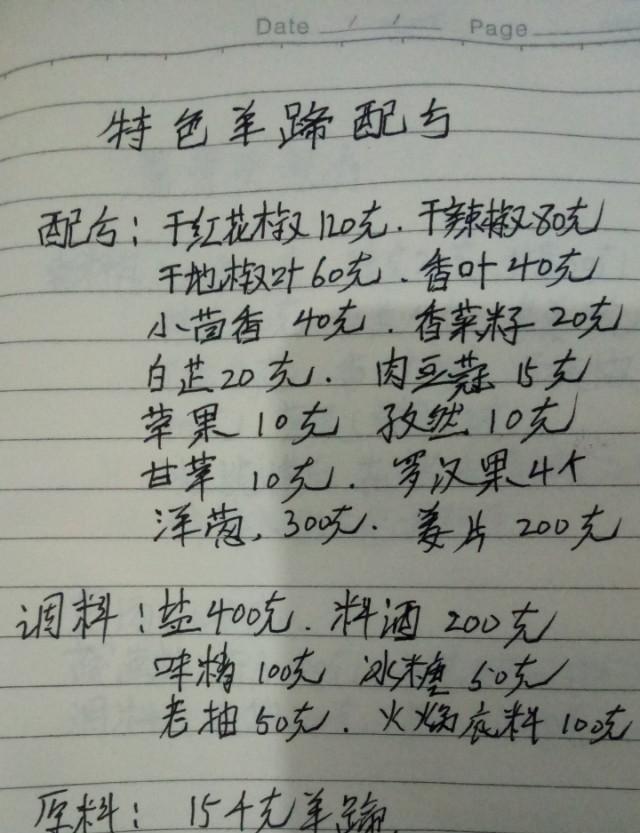 Date / / Page
特色羊蹄配方
配方：干红花椒120克．干辣椒80克
干地椒叶60克．香叶40克
小茴香 40克．香菜籽 20克
白芷20克．肉豆蔻 15克
草果 10克 孜然 10克
甘草 10克．罗汉果4个
洋葱．300克．姜片 200克
调料：盐400克．料酒 200克
味精 100克 冰糖 50克
老抽 50克．火焗底料 100克
原料：15千克羊蹄